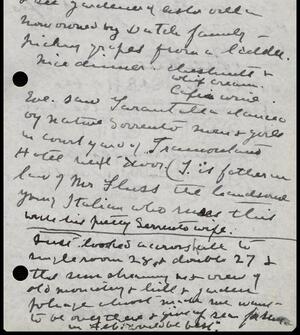 & see gardener & castor villa
now owned by Dutch family -
picking grapes from a ladder.
Nice dinner - chestnuts &
whip cream.
Capri wine.
Eve. saw Tarantella danced
by native Sorrento men & girls
in court yard of Tramontano
Hotel next door (T. is father in
law of Mr Fluss the handsome
young Italian who runs this
with his pretty Sorrento wife.
Just looked across hall to
single room 28 & double 27 &
the same charming view of
old monastery & hill & garden
foliage almost made me want
to be over there & give up sea
in Feb. would be best.